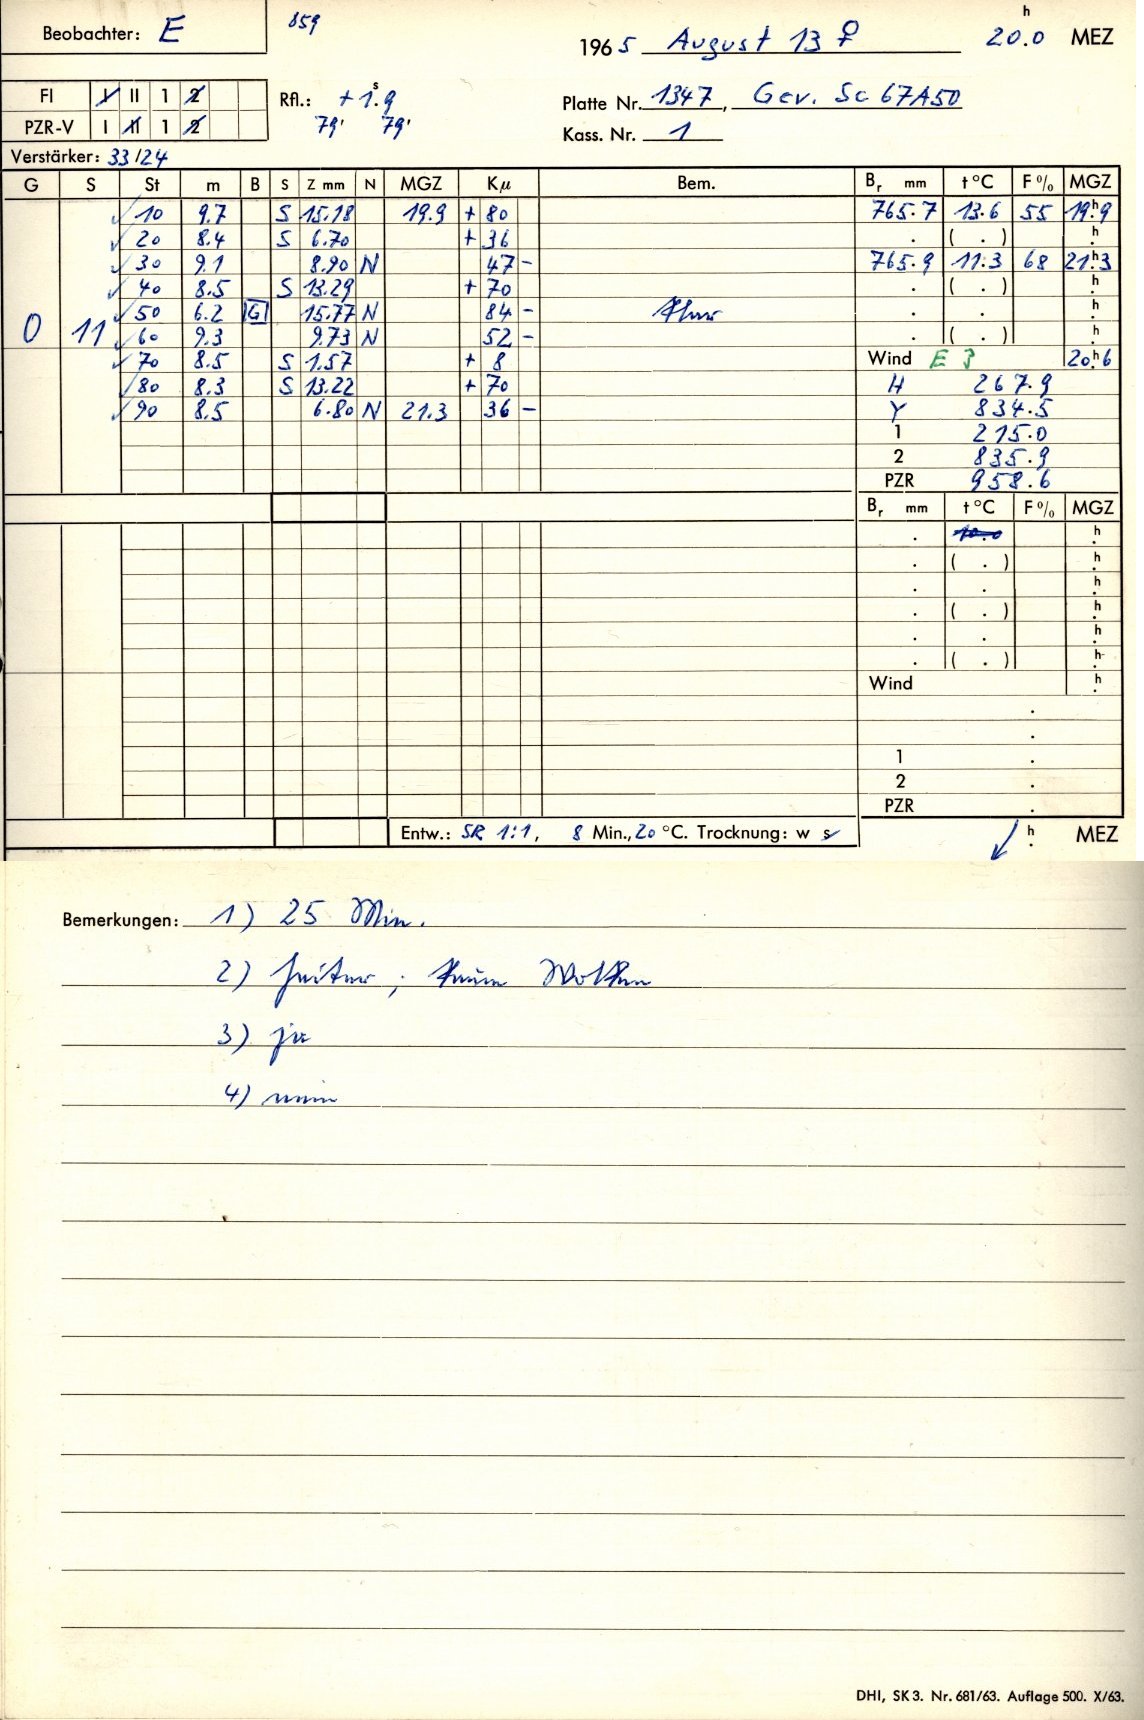 Beobachter: E 859
1965 August 13 ♀ 20.0 h MEZ
FI I II 1 2
PZR-V I II 1 2
Rfl.: + 1.9 s
79' 79'
Platte Nr. 1347, Gev. Sc 67A50
Kass. Nr. 1
Verstärker: 33/24
G S St m B S Z mm N MGZ Kμ Bem. Br mm t °C F % MGZ
10 9.7 S 15.18 19.9 + 80 765.7 13.6 55 19.9 h
20 8.4 S 6.70 + 36 . ( . ) h
30 9.1 8.90 N 47 - 765.9 11.3 68 21.3 h
40 8.5 S 13.29 + 70 . ( . ) h
50 6.2 G 15.77 N 84 - klar . . h
0 11 60 9.3 9.73 N 52 - . ( . ) h
70 8.5 S 1.57 + 8 Wind E 3 20.6 h
80 8.3 S 13.22 + 70 H 267.9
90 8.5 6.80 N 21.3 36 - Y 834.5
1 215.0
2 835.9
PZR 958.6
Br mm t °C F % MGZ
. 10.0 h
. ( . ) h
. . h
. ( . ) h
. . h
. ( . ) h
Wind h
.
.
1 .
2 .
PZR .
Entw.: SR 1:1, 8 Min., 20 °C. Trocknung: w s h MEZ
Bemerkungen: 1) 25 Min.
2) heiter; kaum Wolken
3) ja
4) nein
DHI, SK 3. Nr. 681/63. Auflage 500. X/63.